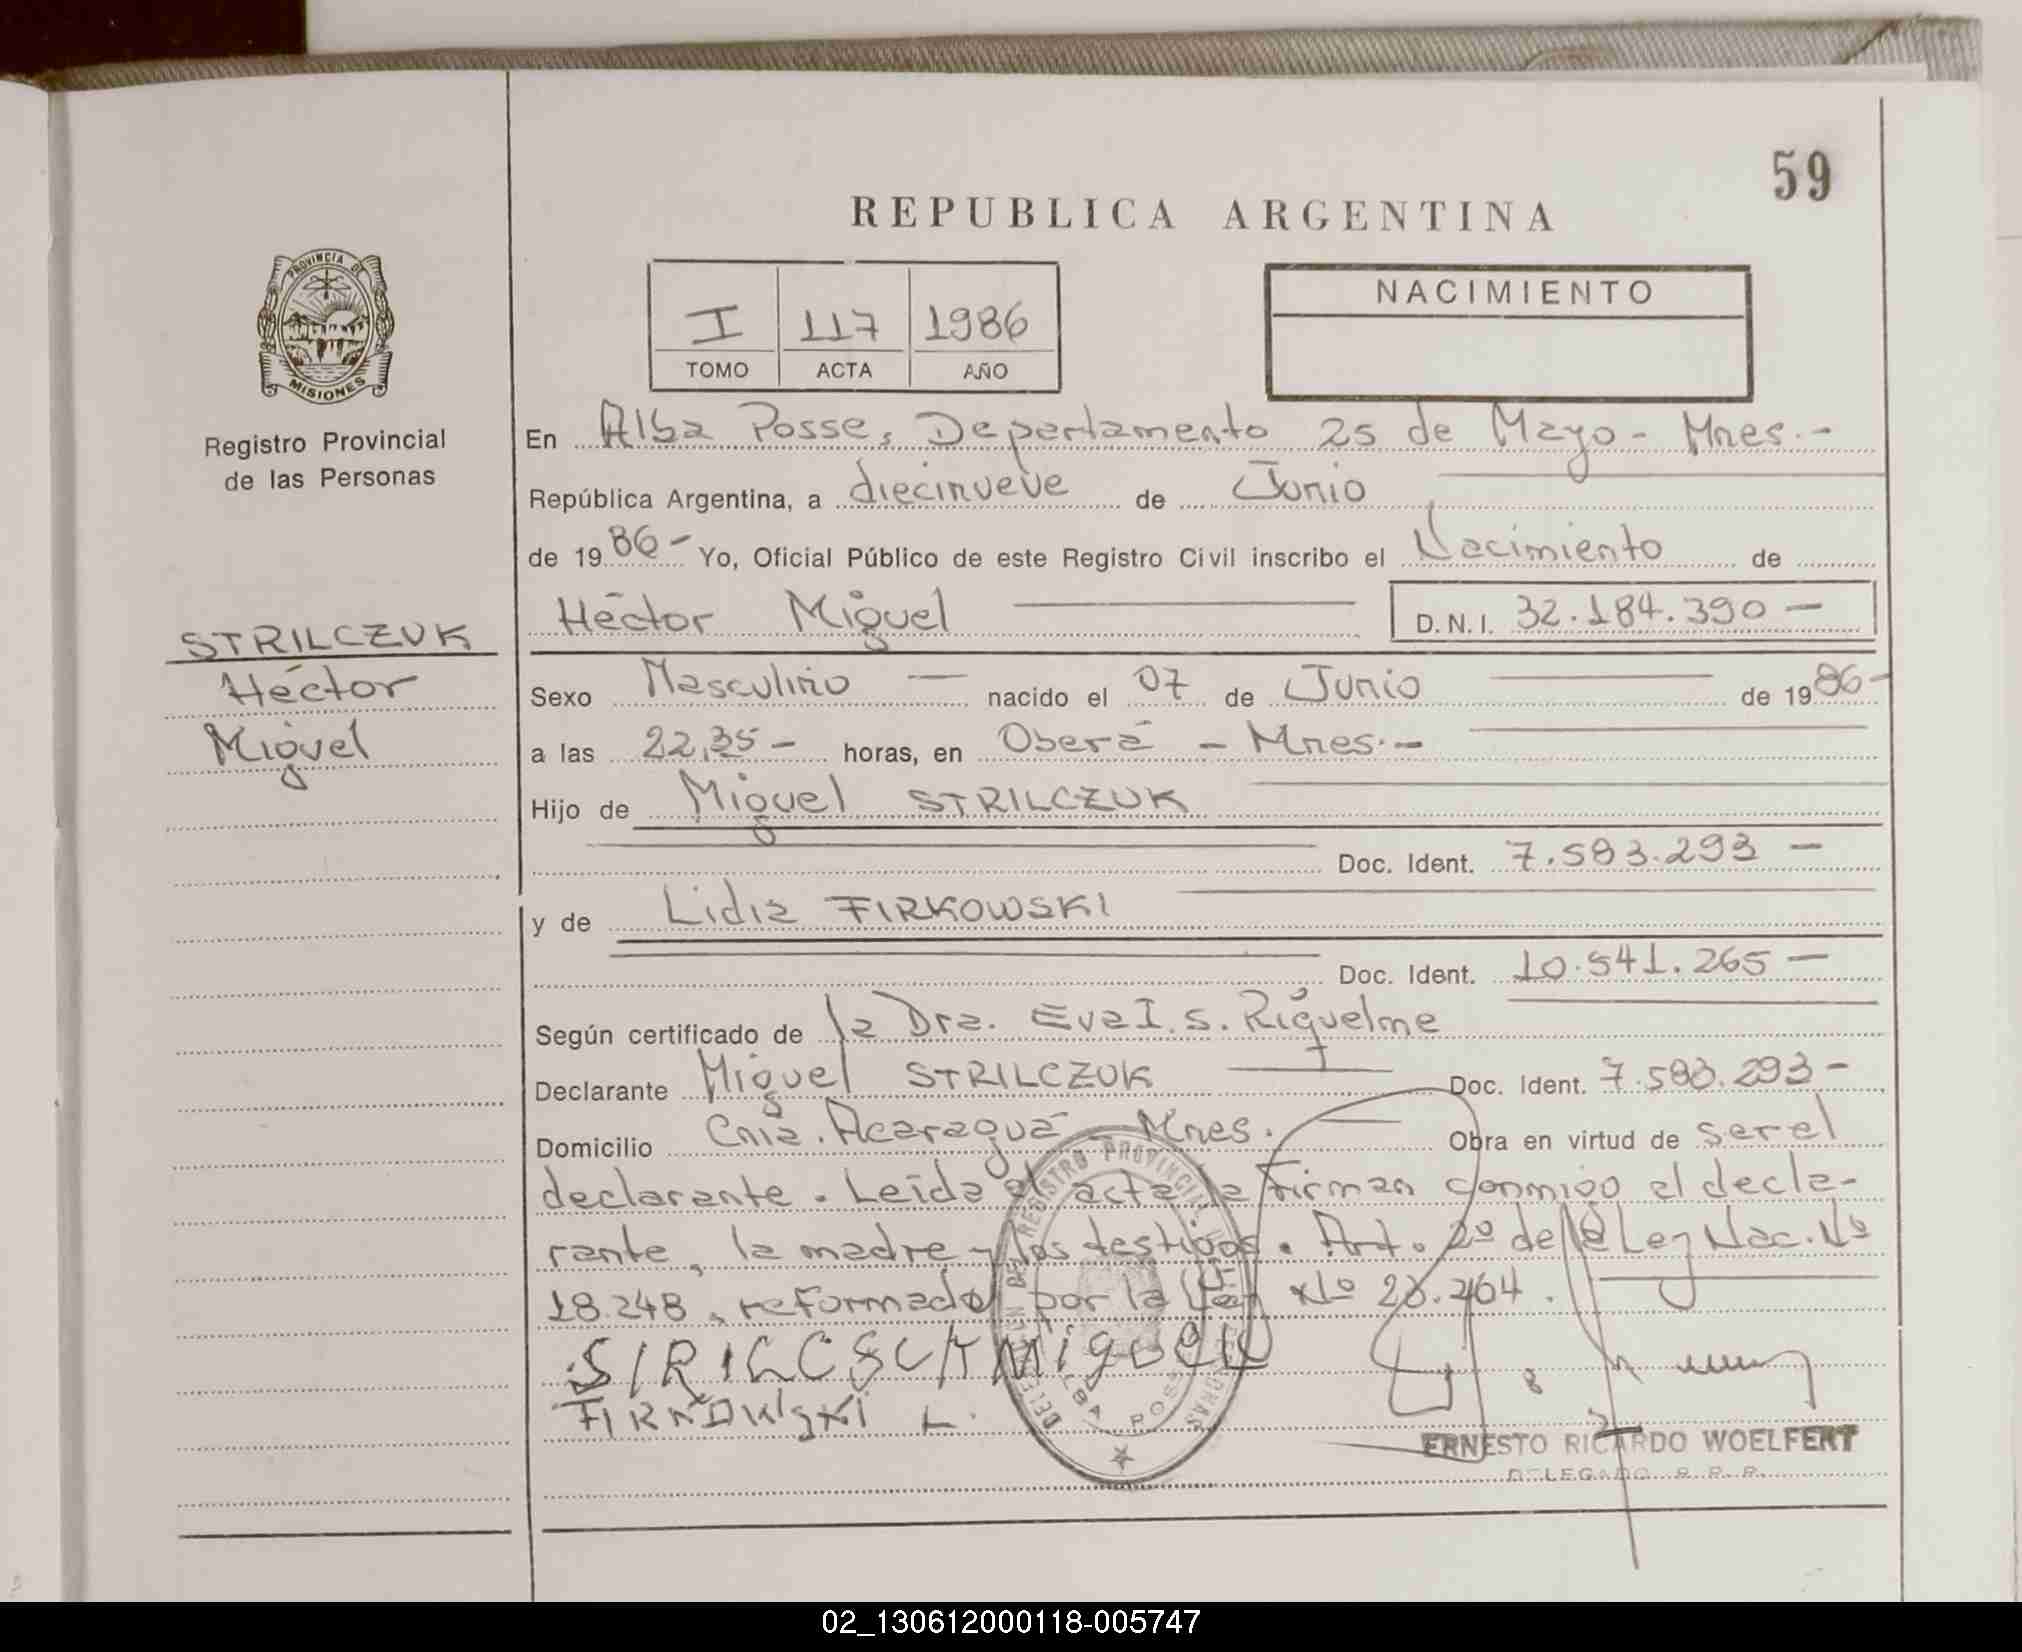 59
REPUBLICA ARGENTINA
PROVINCIA DE
MISIONES
Registro Provincial
de las Personas
I 117 1986
TOMO ACTA AÑO
NACIMIENTO
En Alba Posse, Departamento 25 de Mayo - Mnes.-
República Argentina, a diecinueve de Junio
de 1986- Yo, Oficial Público de este Registro Civil inscribo el Nacimiento de
Héctor Miguel D.N.I. 32.184.390 -
STRILCZUK
Héctor
Miguel
Sexo Masculino - nacido el 07 de Junio de 1986-
a las 22,35- horas, en Oberá - Mnes.-
Hijo de Miguel STRILCZUK
Doc. Ident. 7.583.293 -
y de Lidia FIRKOWSKI
Doc. Ident. 10.541.265 -
Según certificado de la Dra. Eva I. S. Riquelme
Declarante Miguel STRILCZUK Doc. Ident. 7.583.293-
Domicilio Cnia. Acaraguá - Mnes. Obra en virtud de ser el
declarante. Leída el acta la firman conmigo el decla-
rante, la madre y los testigos. Art. 2º de la Ley Nac. Nº
18.248, reformado por la Ley Nº 23.264.
Miguel
FIRKOWSKI L.
DELEGACION DEL REGISTRO PROVINCIAL DE LAS PERSONAS
ALBA POSSE
ERNESTO RICARDO WOELFERT
DELEGADO R. P. P.
02_130612000118-005747